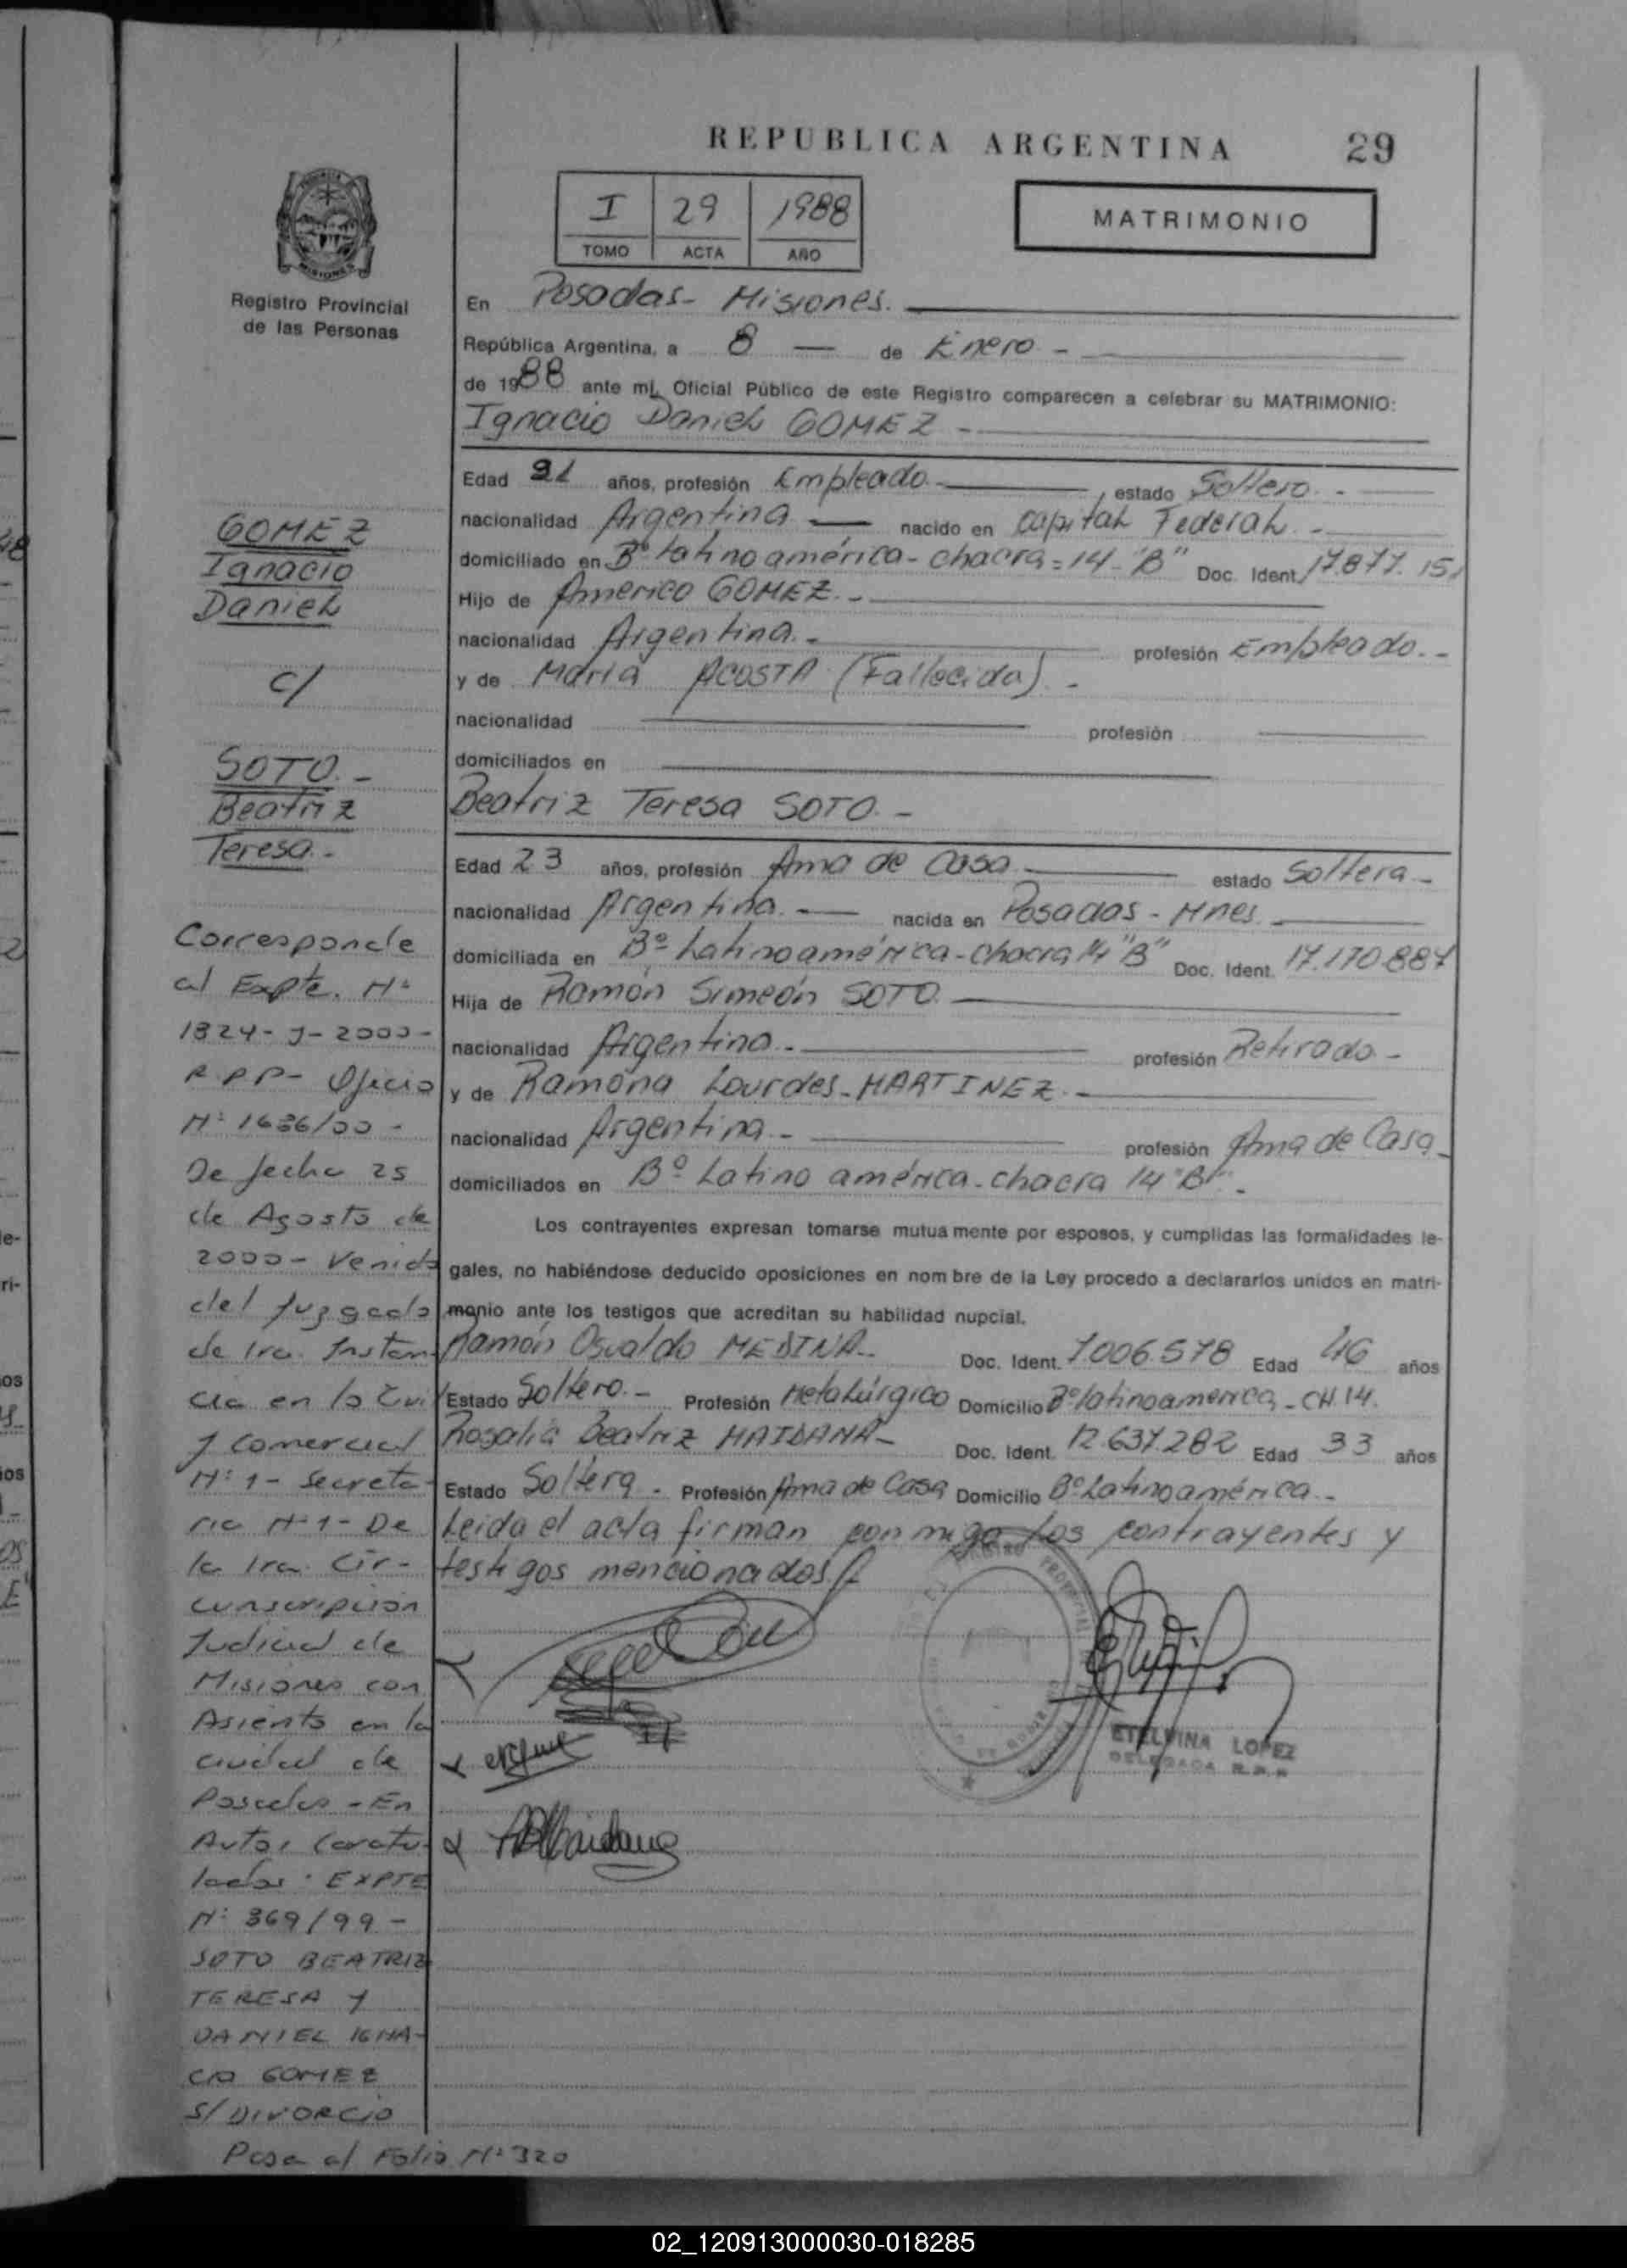 REPUBLICA ARGENTINA 29
I 29 1988
TOMO ACTA AÑO
MATRIMONIO
Registro Provincial
de las Personas
En Posadas - Misiones.
República Argentina, a 8 — de Enero -
de 1988 ante mí, Oficial Público de este Registro comparecen a celebrar su MATRIMONIO:
Ignacio Daniel GOMEZ -
Edad 21 años, profesión Empleado. estado Soltero. -
nacionalidad Argentina — nacido en Capital Federal. -
domiciliado en Bº Latinoamérica - chacra = 14 - "B" Doc. Ident. 17.877.15
Hijo de Americo GOMEZ. -
nacionalidad Argentina. - profesión Empleado. -
y de Maria ACOSTA (Fallecida). -
nacionalidad profesión
domiciliados en
Beatriz Teresa SOTO. -
Edad 23 años, profesión Ama de Casa. estado Soltera -
nacionalidad Argentina. — nacida en Posadas - Mnes.
domiciliada en Bº Latinoamérica - chacra 14 "B" Doc. Ident. 17.170.887
Hija de Ramón Simeón SOTO.
nacionalidad Argentina. - profesión Retirado -
y de Ramona Lourdes - MARTINEZ. -
nacionalidad Argentina. - profesión Ama de Casa -
domiciliados en Bº Latino américa - chacra 14 "B". -
Los contrayentes expresan tomarse mutua mente por esposos, y cumplidas las formalidades le-
gales, no habiéndose deducido oposiciones en nom bre de la Ley procedo a declararlos unidos en matri-
monio ante los testigos que acreditan su habilidad nupcial.
Ramón Osvaldo MEDINA - Doc. Ident. 7.006.578 Edad 46 años
Estado Soltero. - Profesión Metalúrgico Domicilio Bº latinoamerica - CH. 14.
Rosalia Beatriz MAIDANA - Doc. Ident. 12.637.282 Edad 33 años
Estado Soltera - Profesión Ama de Casa Domicilio Bº Latinoamérica. -
Leida el acta firman conmigo los contrayentes y
testigos mencionados.
ETELVINA LOPEZ
DELEGADA R.P.P.
GOMEZ
Ignacio
Daniel
c/
SOTO. -
Beatriz
Teresa. -
Corresponde
al Expte. Nº
1824 - J - 2000 -
R.P.P - Oficio
Nº 1636/00 -
De fecha 25
de Agosto de
2000 - Venido
del Juzgado
de 1ra. Instan-
cia en lo Civil
y Comercial
Nº 1 - Secreta-
ria Nº 1 - De
la 1ra. Cir-
cunscripción
Judicial de
Misiones con
Asiento en la
ciudad de
Posadas - En
Autos Caratu-
lados: EXPTE
Nº 369/99 -
SOTO BEATRIZ
TERESA Y
DANIEL IGNA-
CIO GOMEZ
S/ DIVORCIO
Pasa al Folio Nº 320
02_120913000030-018285